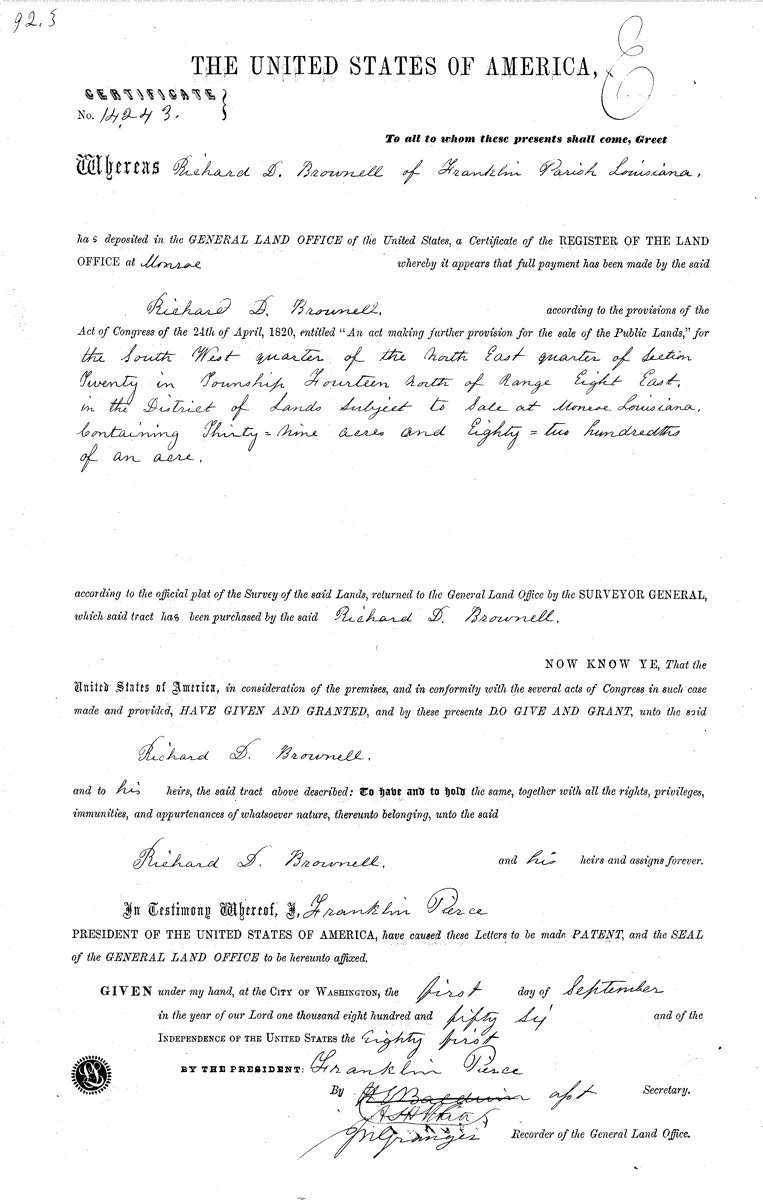 92.5
THE UNITED STATES OF AMERICA,
E
CERTIFICATE
No. 14243.
To all to whom these presents shall come, Greet
Whereas Richard D. Brownell of Franklin Parish Louisiana,
has deposited in the GENERAL LAND OFFICE of the United States, a Certificate of the REGISTER OF THE LAND
OFFICE at Monroe whereby it appears that full payment has been made by the said
Richard D. Brownell, according to the provisions of the
Act of Congress of the 24th of April, 1820, entitled "An act making further provision for the sale of the Public Lands," for
the South West quarter of the North East quarter of Section
Twenty in Township Fourteen North of Range Eight East,
in the District of Lands Subject to Sale at Monroe Louisiana,
Containing Thirty=nine acres and Eighty=two hundredths
of an acre.
according to the official plat of the Survey of the said Lands, returned to the General Land Office by the SURVEYOR GENERAL,
which said tract has been purchased by the said Richard D. Brownell.
NOW KNOW YE, That the
United States of America, in consideration of the premises, and in conformity with the several acts of Congress in such case
made and provided, HAVE GIVEN AND GRANTED, and by these presents DO GIVE AND GRANT, unto the said
Richard D. Brownell.
and to his heirs, the said tract above described: To have and to hold the same, together with all the rights, privileges,
immunities, and appurtenances of whatsoever nature, thereunto belonging, unto the said
Richard D. Brownell, and his heirs and assigns forever.
In Testimony Whereof, I, Franklin Pierce
PRESIDENT OF THE UNITED STATES OF AMERICA, have caused these Letters to be made PATENT, and the SEAL
of the GENERAL LAND OFFICE to be hereunto affixed.
GIVEN under my hand, at the CITY OF WASHINGTON, the first day of September
in the year of our Lord one thousand eight hundred and fifty Six and of the
INDEPENDENCE OF THE UNITED STATES the Eighty first
BY THE PRESIDENT: Franklin Pierce
By Baldwin Secretary.
JN Granger Recorder of the General Land Office.